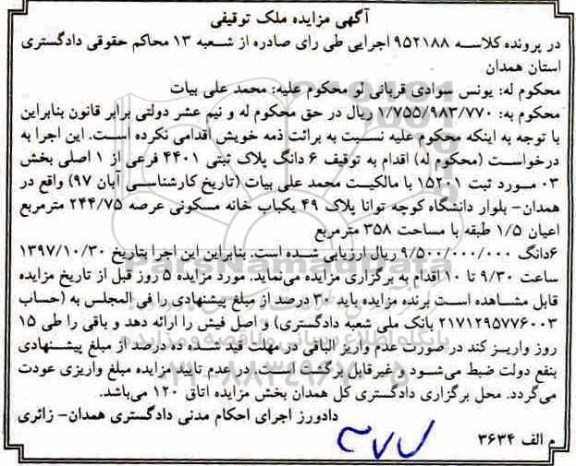 آگهی مزایده ملک توقیفی
در پرونده کلاسه ۹۵۲۱۸۸ اجرایی طی رای صادره از شعبه ۱۳ محاکم حقوقی دادگستری
استان همدان
محکوم له: یونس سوادی قربانی لو محکوم علیه: محمد علی بیات
محکوم به: ۱/۷۵۵/۹۸۳/۷۷۰ ریال در حق محکوم له و نیم عشر دولتی برابر قانون بنابراین
با توجه به اینکه محکوم علیه نسبت به برائت ذمه خویش اقدامی نکرده است. این اجرا به
درخواست (محکوم له) اقدام به توقیف ۶ دانگ پلاک ثبتی ۴۴۰۱ فرعی از ۱ اصلی بخش
۰۳ مورد ثبت ۱۵۲۰۱ با مالکیت محمد علی بیات (تاریخ کارشناسی آبان ۹۷) واقع در
همدان- بلوار دانشگاه کوچه توانا پلاک ۴۹ یکباب خانه مسکونی عرصه ۲۴۴/۷۵ مترمربع
اعیان ۱/۵ طبقه با مساحت ۳۵۸ مترمربع
۶دانگ ۹/۵۰۰/۰۰۰/۰۰۰ ریال ارزیابی شده است. بنابراین این اجرا بتاریخ ۱۳۹۷/۱۰/۳۰
ساعت ۹/۳۰ تا ۱۰ اقدام به برگزاری مزایده می‌نماید. مورد مزایده ۵ روز قبل از تاریخ مزایده
قابل مشاهده است برنده مزایده باید ۳۰ درصد از مبلغ پیشنهادی را فی المجلس به (حساب
۲۱۷۱۲۹۵۷۷۶۰۰۳ بانک ملی شعبه دادگستری) و اصل فیش را ارائه دهد و باقی را طی ۱۵
روز واریز کند در صورت عدم واریز الباقی در مهلت قید شده ده درصد از مبلغ پیشنهادی
بنفع دولت ضبط می‌شود و غیرقابل برگشت است. در عدم تایید مزایده مبلغ واریزی عودت
می‌گردد. محل برگزاری دادگستری کل همدان بخش مزایده اتاق ۱۲۰ می‌باشد.
دادورز اجرای احکام مدنی دادگستری همدان- زائری
م الف ۳۶۳۴